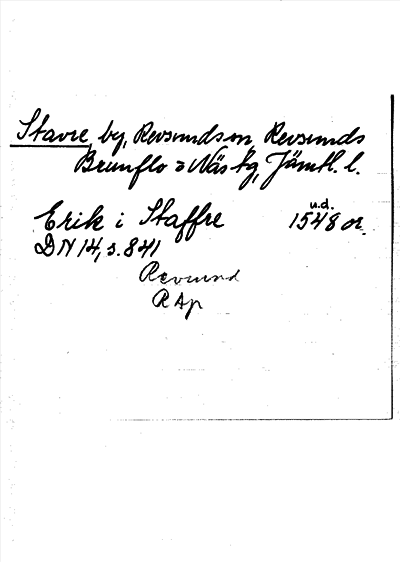 Stavre, by, Revsunds sn, Revsunds
Brunflo o Näs tg, Jämtl. l.
Erik i Staffre u.d. 1548 or.
DN 14, s. 841
Revsund
RAp